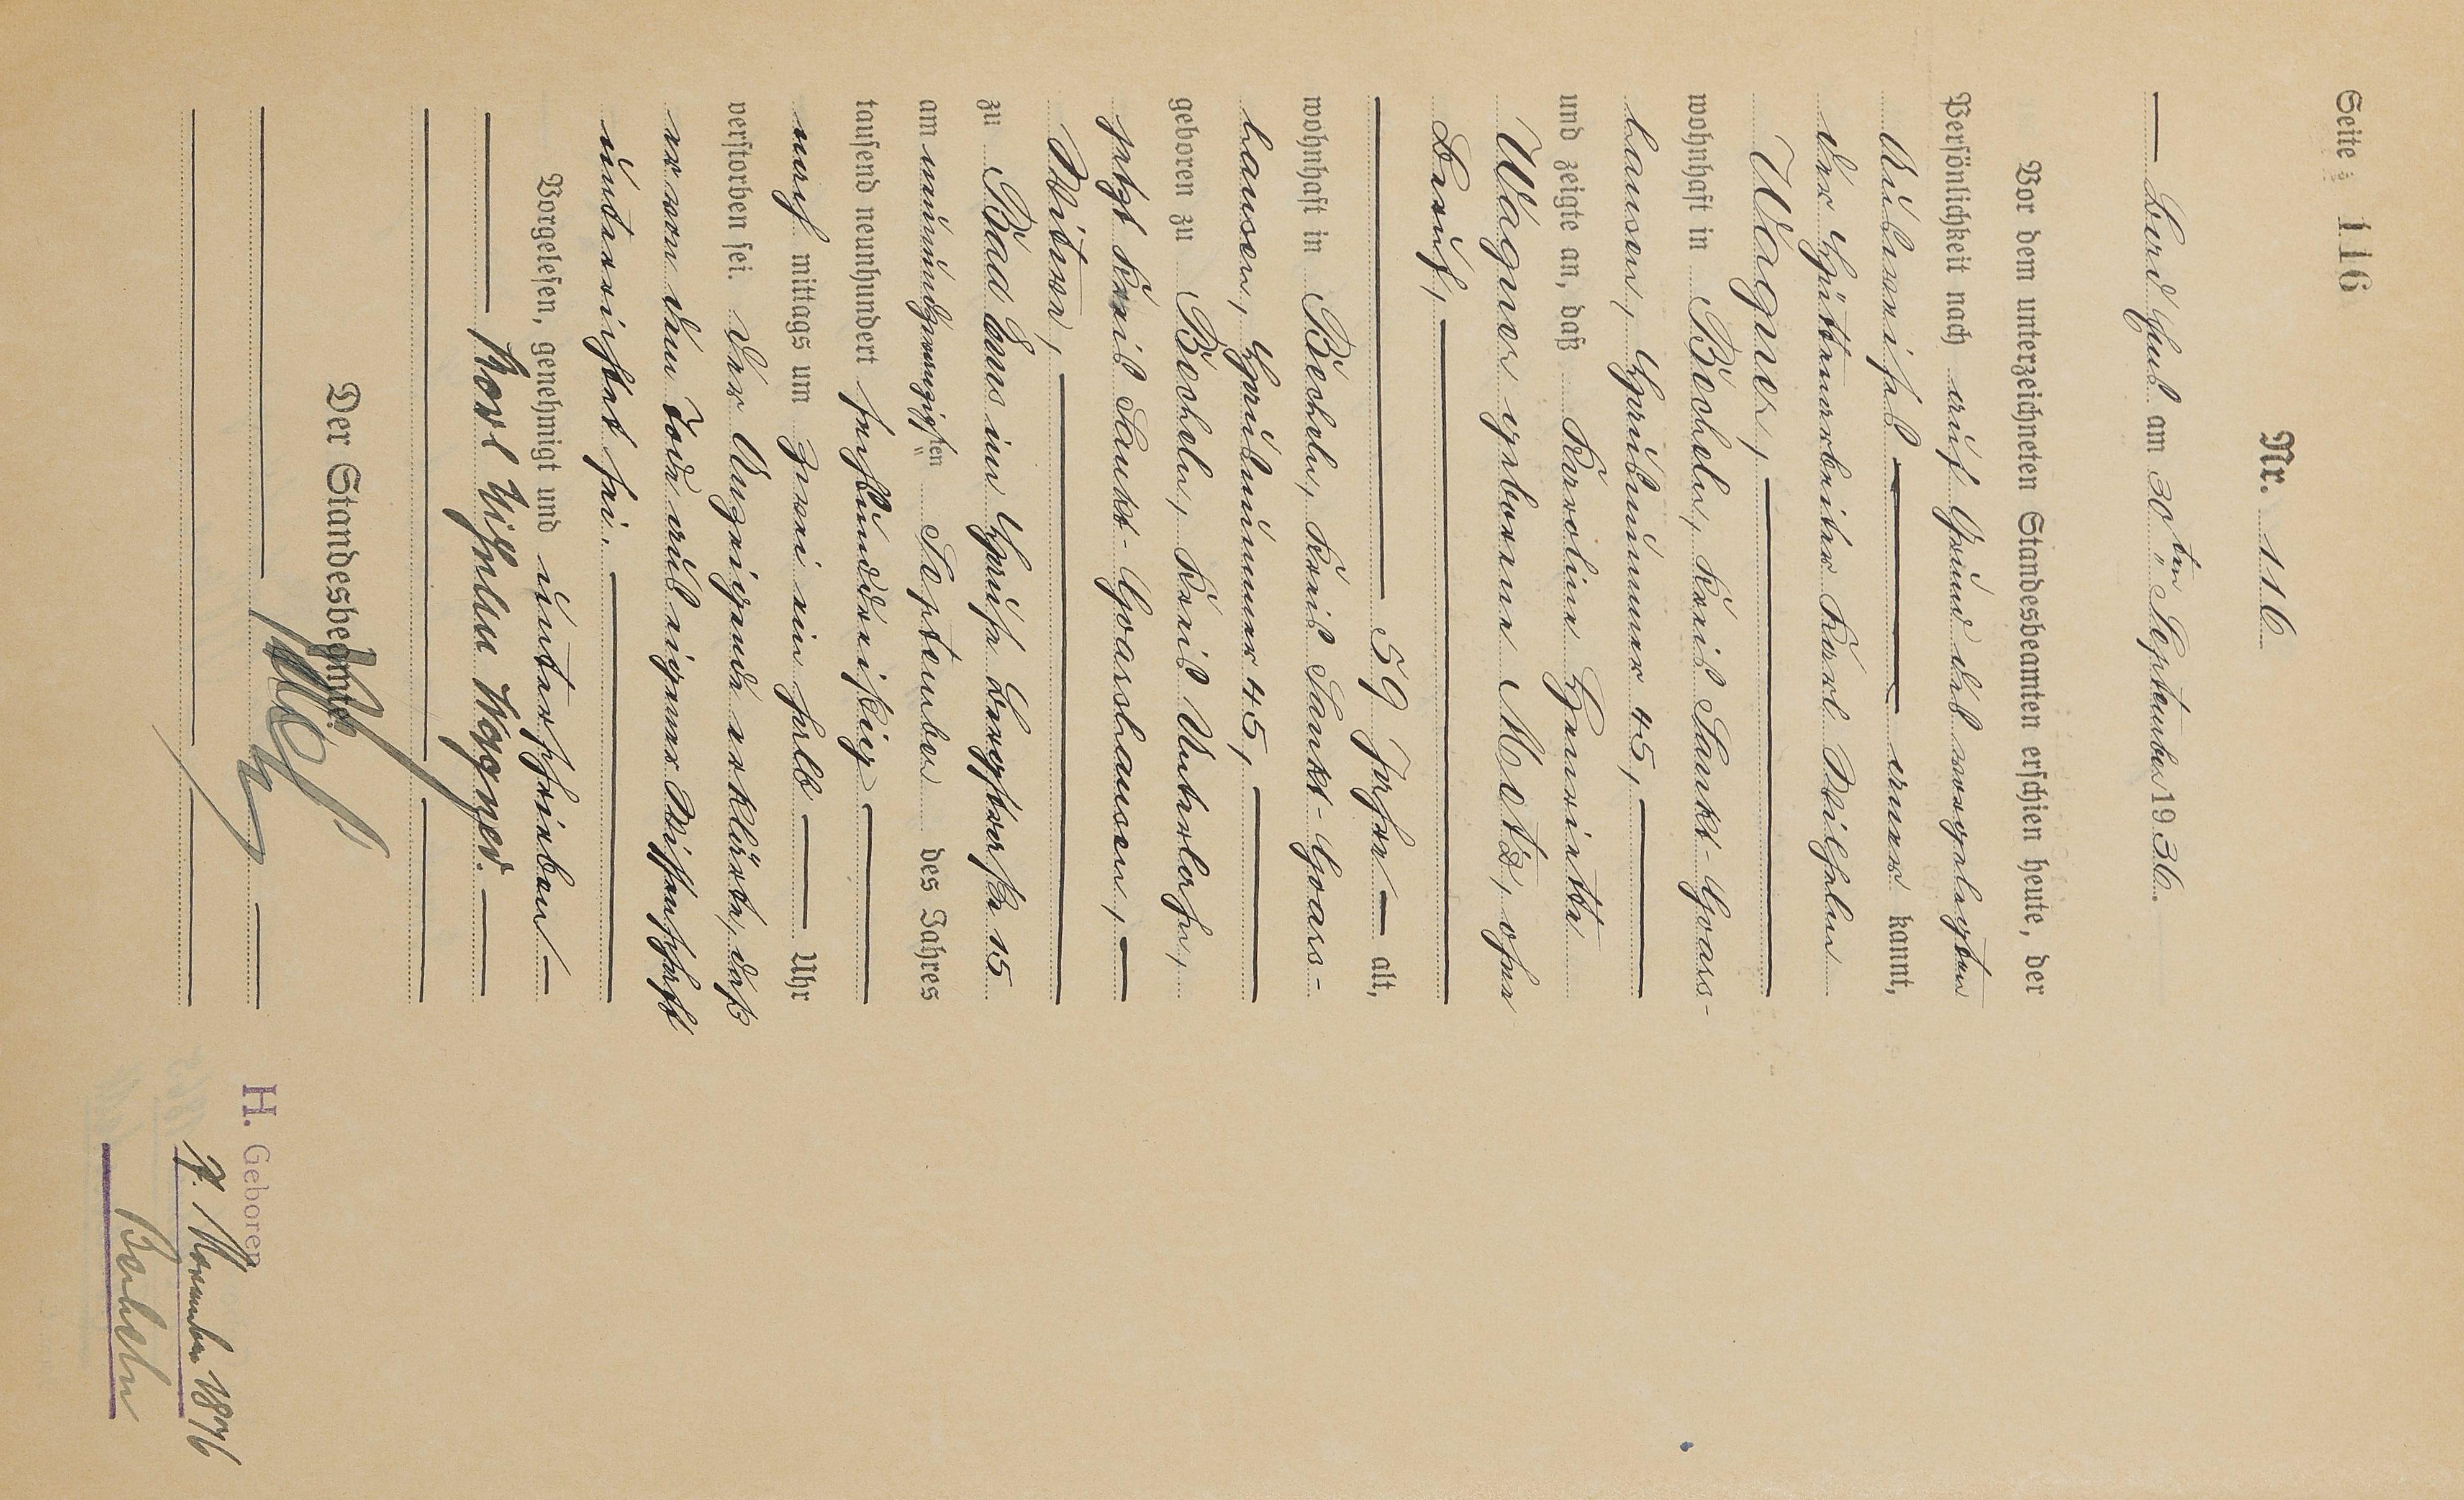 Seite 116
Nr. 116
Bad Ems am 30ten September 1936.
Vor dem unterzeichneten Standesbeamten erschien heute, der
Persönlichkeit nach auf Grund des vorgelegten
Ausweises anerkannt,
der Hüttenarbeiter Karl Wilhelm
Wagner,
wohnhaft in Becheln, Kreis Sankt-Goars-
hausen, Hausnummer 45,
und zeigte an, daß Karoline Henriette
Wagner geborene Metz, ohne
Beruf,
59 Jahre alt,
wohnhaft in Becheln, Kreis Sankt-Goars-
hausen, Hausnummer 45,
geboren zu Becheln, Kreis Unterlahn,
jetzt Kreis Sankt-Goarshausen,
Witwe,
zu Bad Ems im Hause Bergstraße 15
am neunundzwanzigsten September des Jahres
tausend neunhundert sechsunddreißig
nach mittags um zwei ein halb Uhr
verstorben sei. Der Anzeigende erklärte, daß
er von dem Tode aus eigener Wissenschaft
unterrichtet sei.
Vorgelesen, genehmigt und unterschrieben
Karl Wilhelm Wagner.
Der Standesbeamte.
H. Geboren
7. November 1876
Becheln